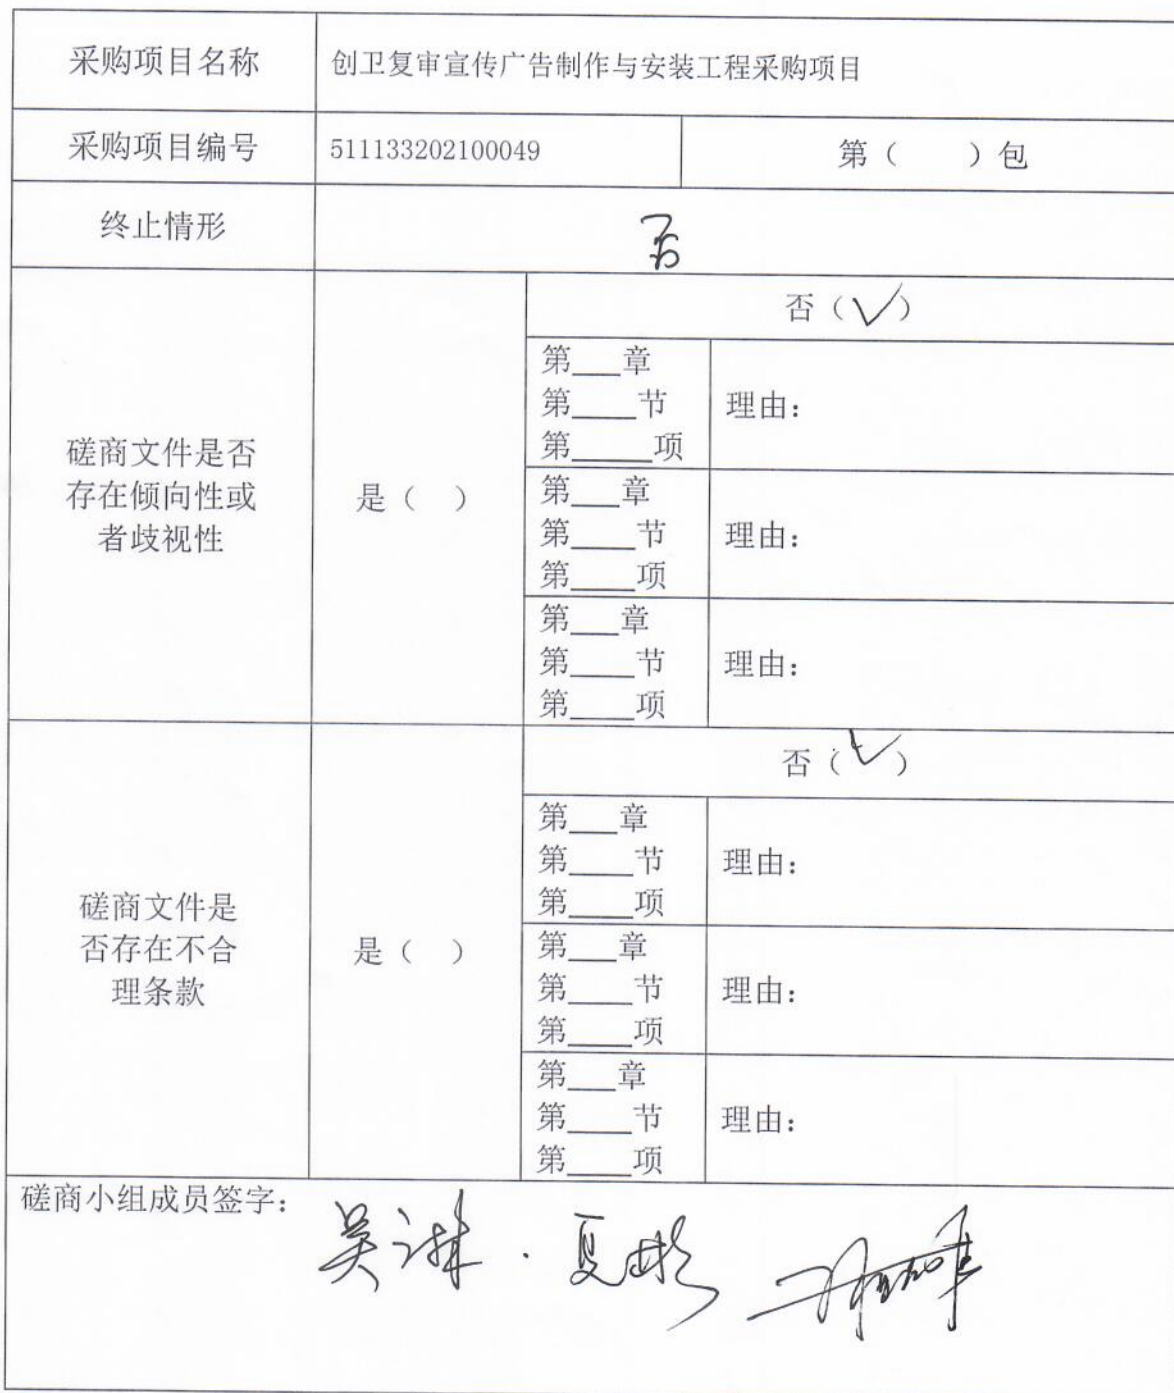 采购项目名称
创卫复审宣传广告制作与安装工程采购项目
采购项目编号
511133202100049
第（ ）包
终止情形
否
磋商文件是否
存在倾向性或
者歧视性
是（ ）
否（√）
第___章
第____节
第_____项
理由：
第___章
第____节
第____项
理由：
第___章
第____节
第____项
理由：
磋商文件是
否存在不合
理条款
是（ ）
否（√）
第___章
第____节
第____项
理由：
第___章
第____节
第____项
理由：
第___章
第____节
第____项
理由：
磋商小组成员签字：
吴
夏彬